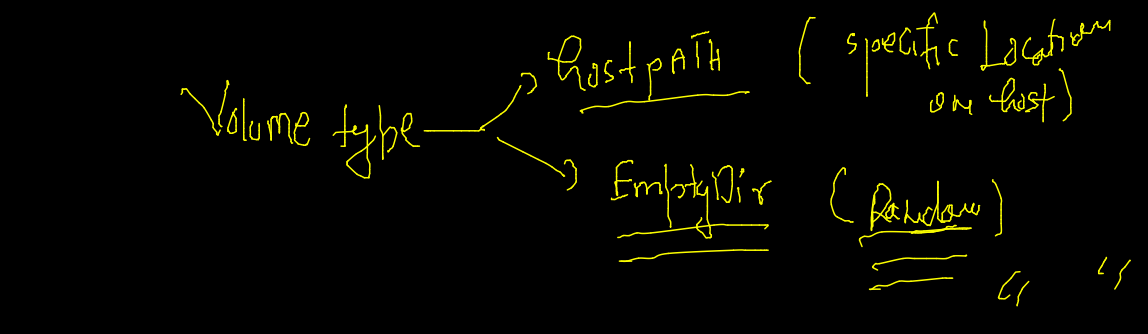 Volume type
hostpATH
( specific Location
on host)
EmptyDir
(Random)
" "